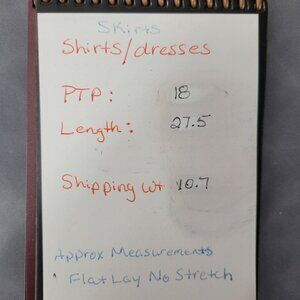 Skirts
Shirts/dresses
PTP: 18
Length: 27.5
Shipping wt 10.7
Approx Measurements
Flat Lay No Stretch